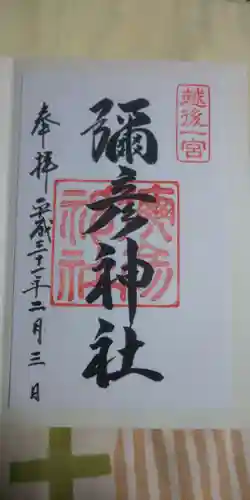 越後一宮
彌彦神社
奉拝 平成三十一年二月三日